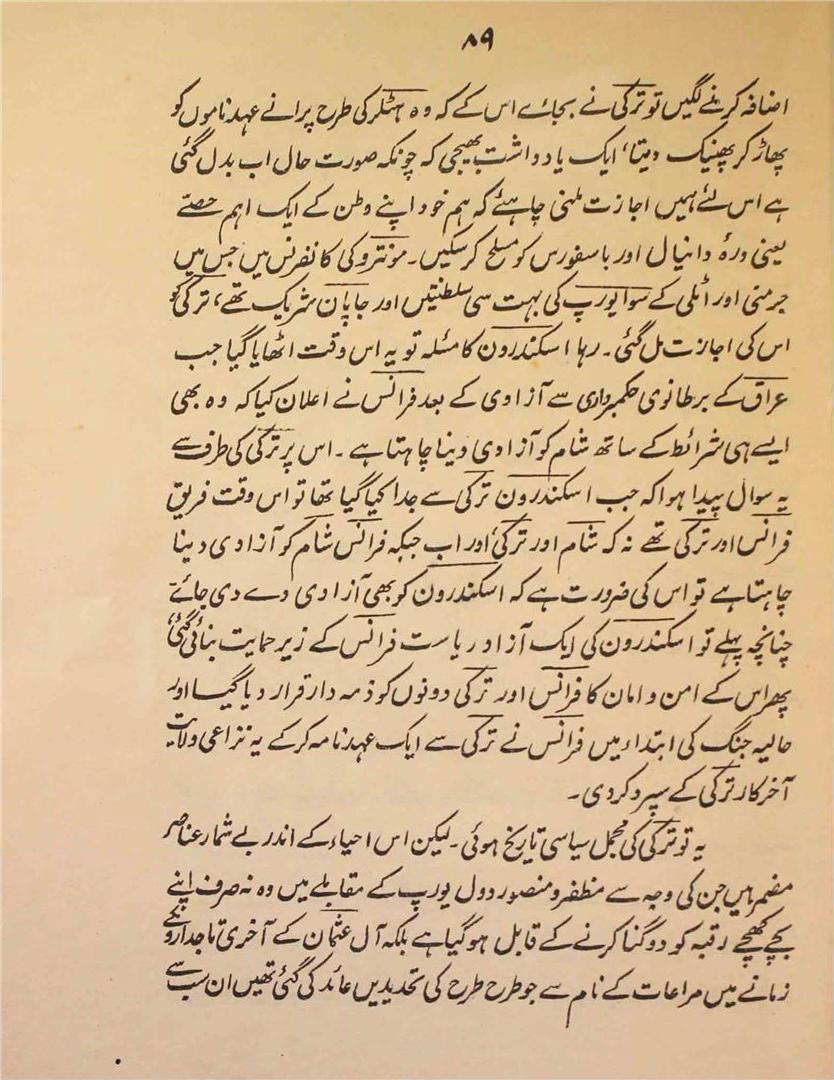 ۸۹
اضافہ کرنے لگیں تو ترکی نے بجائے اس کے کہ وہ ہٹلر کی طرح پرانے عہدناموں کو
پھاڑ کر پھینک دیتا، ایک یادداشت بھیجی کہ چونکہ صورت حال اب بدل گئی
ہے اس لئے ہمیں اجازت ملنی چاہئے کہ ہم خود اپنے وطن کے ایک اہم حصے
یعنی درۂ دانیال اور باسفورس کو مسلح کرسکیں۔ مونترو کی کانفرنس میں جس میں
جرمنی اور اٹلی کے سوا یورپ کی بہت سی سلطنتیں اور جاپان شریک تھے، ترکی کو
اس کی اجازت مل گئی۔ رہا اسکندرون کا مسئلہ تو یہ اس وقت اٹھایا گیا جب
عراق کے برطانوی حکمبرداری سے آزادی کے بعد فرانس نے اعلان کیا کہ وہ بھی
ایسے ہی شرائط کے ساتھ شام کو آزادی دینا چاہتا ہے۔ اس پر ترکی کی طرف سے
یہ سوال پیدا ہوا کہ جب اسکندرون ترکی سے جدا کیا گیا تھا تو اس وقت فریق
فرانس اور ترکی تھے نہ کہ شام اور ترکی، اور اب جبکہ فرانس شام کو آزادی دینا
چاہتا ہے تو اس کی ضرورت ہے کہ اسکندرون کو بھی آزادی دے دی جائے
چنانچہ پہلے تو اسکندرون کی ایک آزاد ریاست فرانس کے زیر حمایت بنائی گئی،
پھر اس کے امن و امان کا فرانس اور ترکی دونوں کو ذمہ دار قرار دیا گیا۔ اور
حالیہ جنگ کی ابتداء میں فرانس نے ترکی سے ایک عہدنامہ کرکے یہ نزاعی ولایت
آخرکار ترکی کے سپرد کردی۔
یہ تو ترکی کی مجمل سیاسی تاریخ ہوئی۔ لیکن اس احیاء کے اندر بے شمار عناصر
مضمر ہیں جن کی وجہ سے مظفر و منصور دول یورپ کے مقابلے میں وہ نہ صرف اپنے
بچے کھچے رقبہ کو دوگنا کرنے کے قابل ہوگیا ہے بلکہ آل عثمان کے آخری تاجداروں کے
زمانے میں مراعات کے نام سے جو طرح طرح کی تحدیدیں عائد کی گئی تھیں ان سب سے